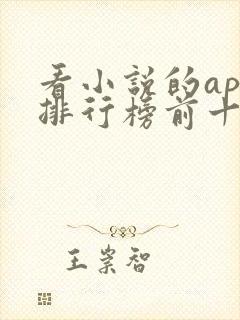 看小说的ap
排行榜前十
王崇智